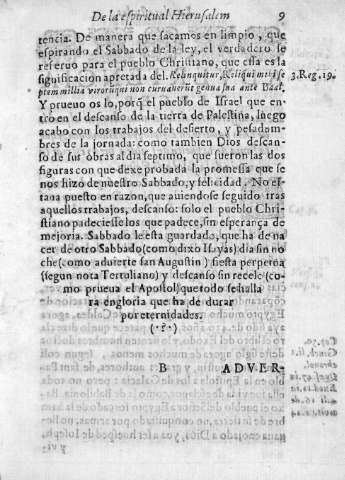 De la espiritual Hierusalem 9
tencia. De manera que sacamos en limpio, que
espirando el Sabbado de la ley, el verdadero se
reseruo para el pueblo Christiano, que essa es la
significacion apretada del. Relinquitur, Reliqui mihi se 3. Reg. 19.
ptem millia virorum qui non curuauerūt genua sua ante Baal.
Y prueuo os lo, porq̃ el pueblo de Israel que en-
tro en el descanso de la tierra de Palestina, luego
acabo con los trabajos del desierto, y pesadum-
bres de la jornada: como tambien Dios descan-
so de sus obras al dia septimo, que sueron las dos
figuras con que dexe probada la promessa que se
nos hizo de nuestro Sabbado, y felicidad. No es-
taua puesto en razon, que auiendose seguido tras
aquellos trabajos, descanso: solo el pueblo Chri-
stiano padeciesse los que padece, sin esperança de
mejoria. Sabbado le esta guardado, que ha de na
cer de otro Sabbado (como dixo Isayas) dia sin no
che (como aduierte san Augustin) fiesta perpetua
(segun nota Tertuliano) y descanso sin recelo (co-
mo prueua el Apostol) que todo se halla
ra en gloria que ha de durar
por eternidades.
(·?·)
B ADVER-